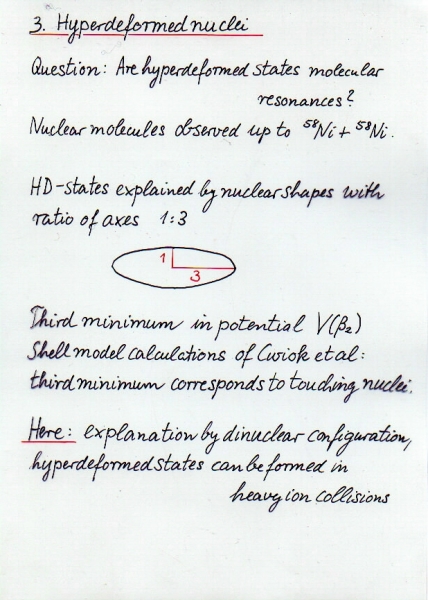 3. Hyperdeformed nuclei
Question: Are hyperdeformed states molecular
resonances?
Nuclear molecules observed up to ⁵⁸Ni + ⁵⁸Ni.
HD-states explained by nuclear shapes with
ratio of axes 1:3
1
3
Third minimum in potential V(β₂)
Shell model calculations of Cwiok et al:
third minimum corresponds to touching nuclei.
Here: explanation by dinuclear configuration,
hyperdeformed states can be formed in
heavy ion collisions